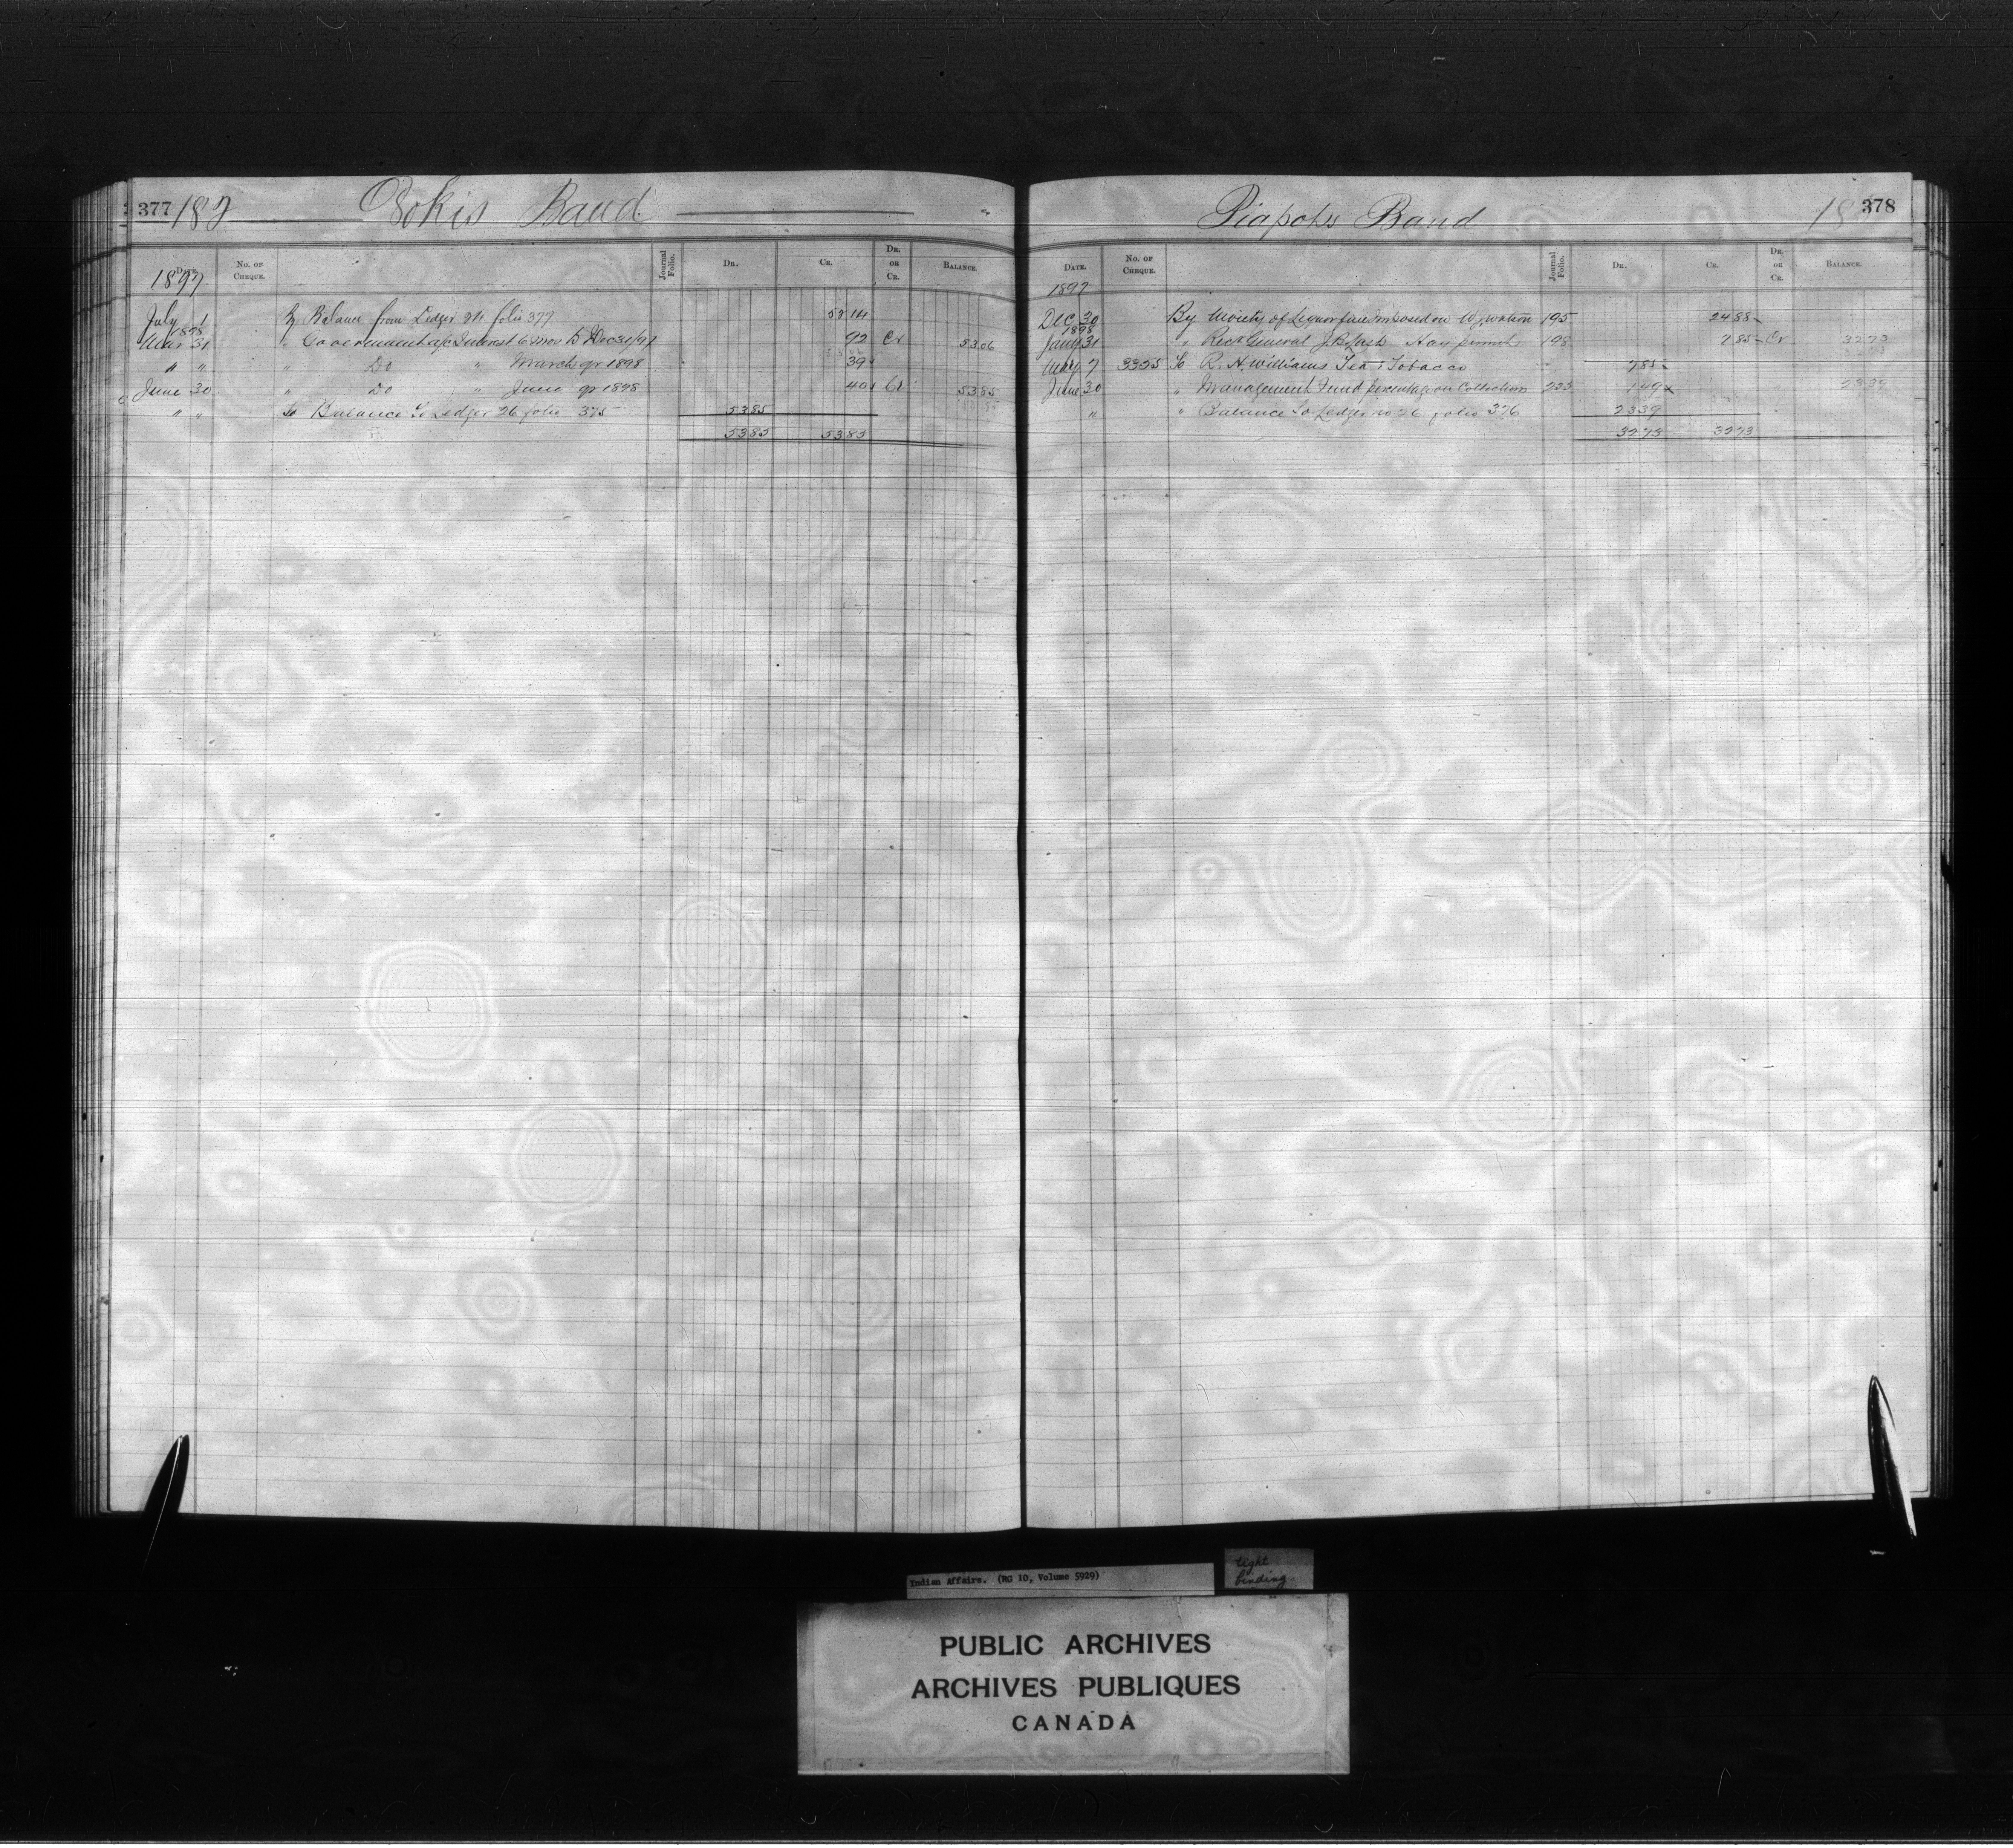 377 187 Band
1897
DATE. NO. OF CHEQUE. Journal Folio. DR. CR. DR. OR CR. BALANCE.
July 1 By Balance from Ledger 24 folio 377 5214
1898
Mar 31 " Government a/c Interest 6 mos to Dec 31/97 92 Cr 5306
" " " Do " March qr 1898 39
June 30 " Do " June qr 1898 40 Cr 5385
" " To Balance to Ledger 26 folio 375 5385
5385 5385
Piapots Band 18 378
DATE. NO. OF CHEQUE. Journal Folio. DR. CR. DR. OR CR. BALANCE.
1897
Dec 30 By Moiety of Liquor fine imposed on W. Watson 195 2488
1898
Jany 31 " Recr General Hay permits 198 785 Cr 3273
May 7 3325 To R. H. Williams Tea & Tobacco 785
June 30 " Management Fund percentage on Collections 223 149 2339
" " Balance to Ledger no 26 folio 376 2339
3273 3273
Indian Affairs. (RG 10, Volume 5929)
tight
binding
PUBLIC ARCHIVES
ARCHIVES PUBLIQUES
CANADA